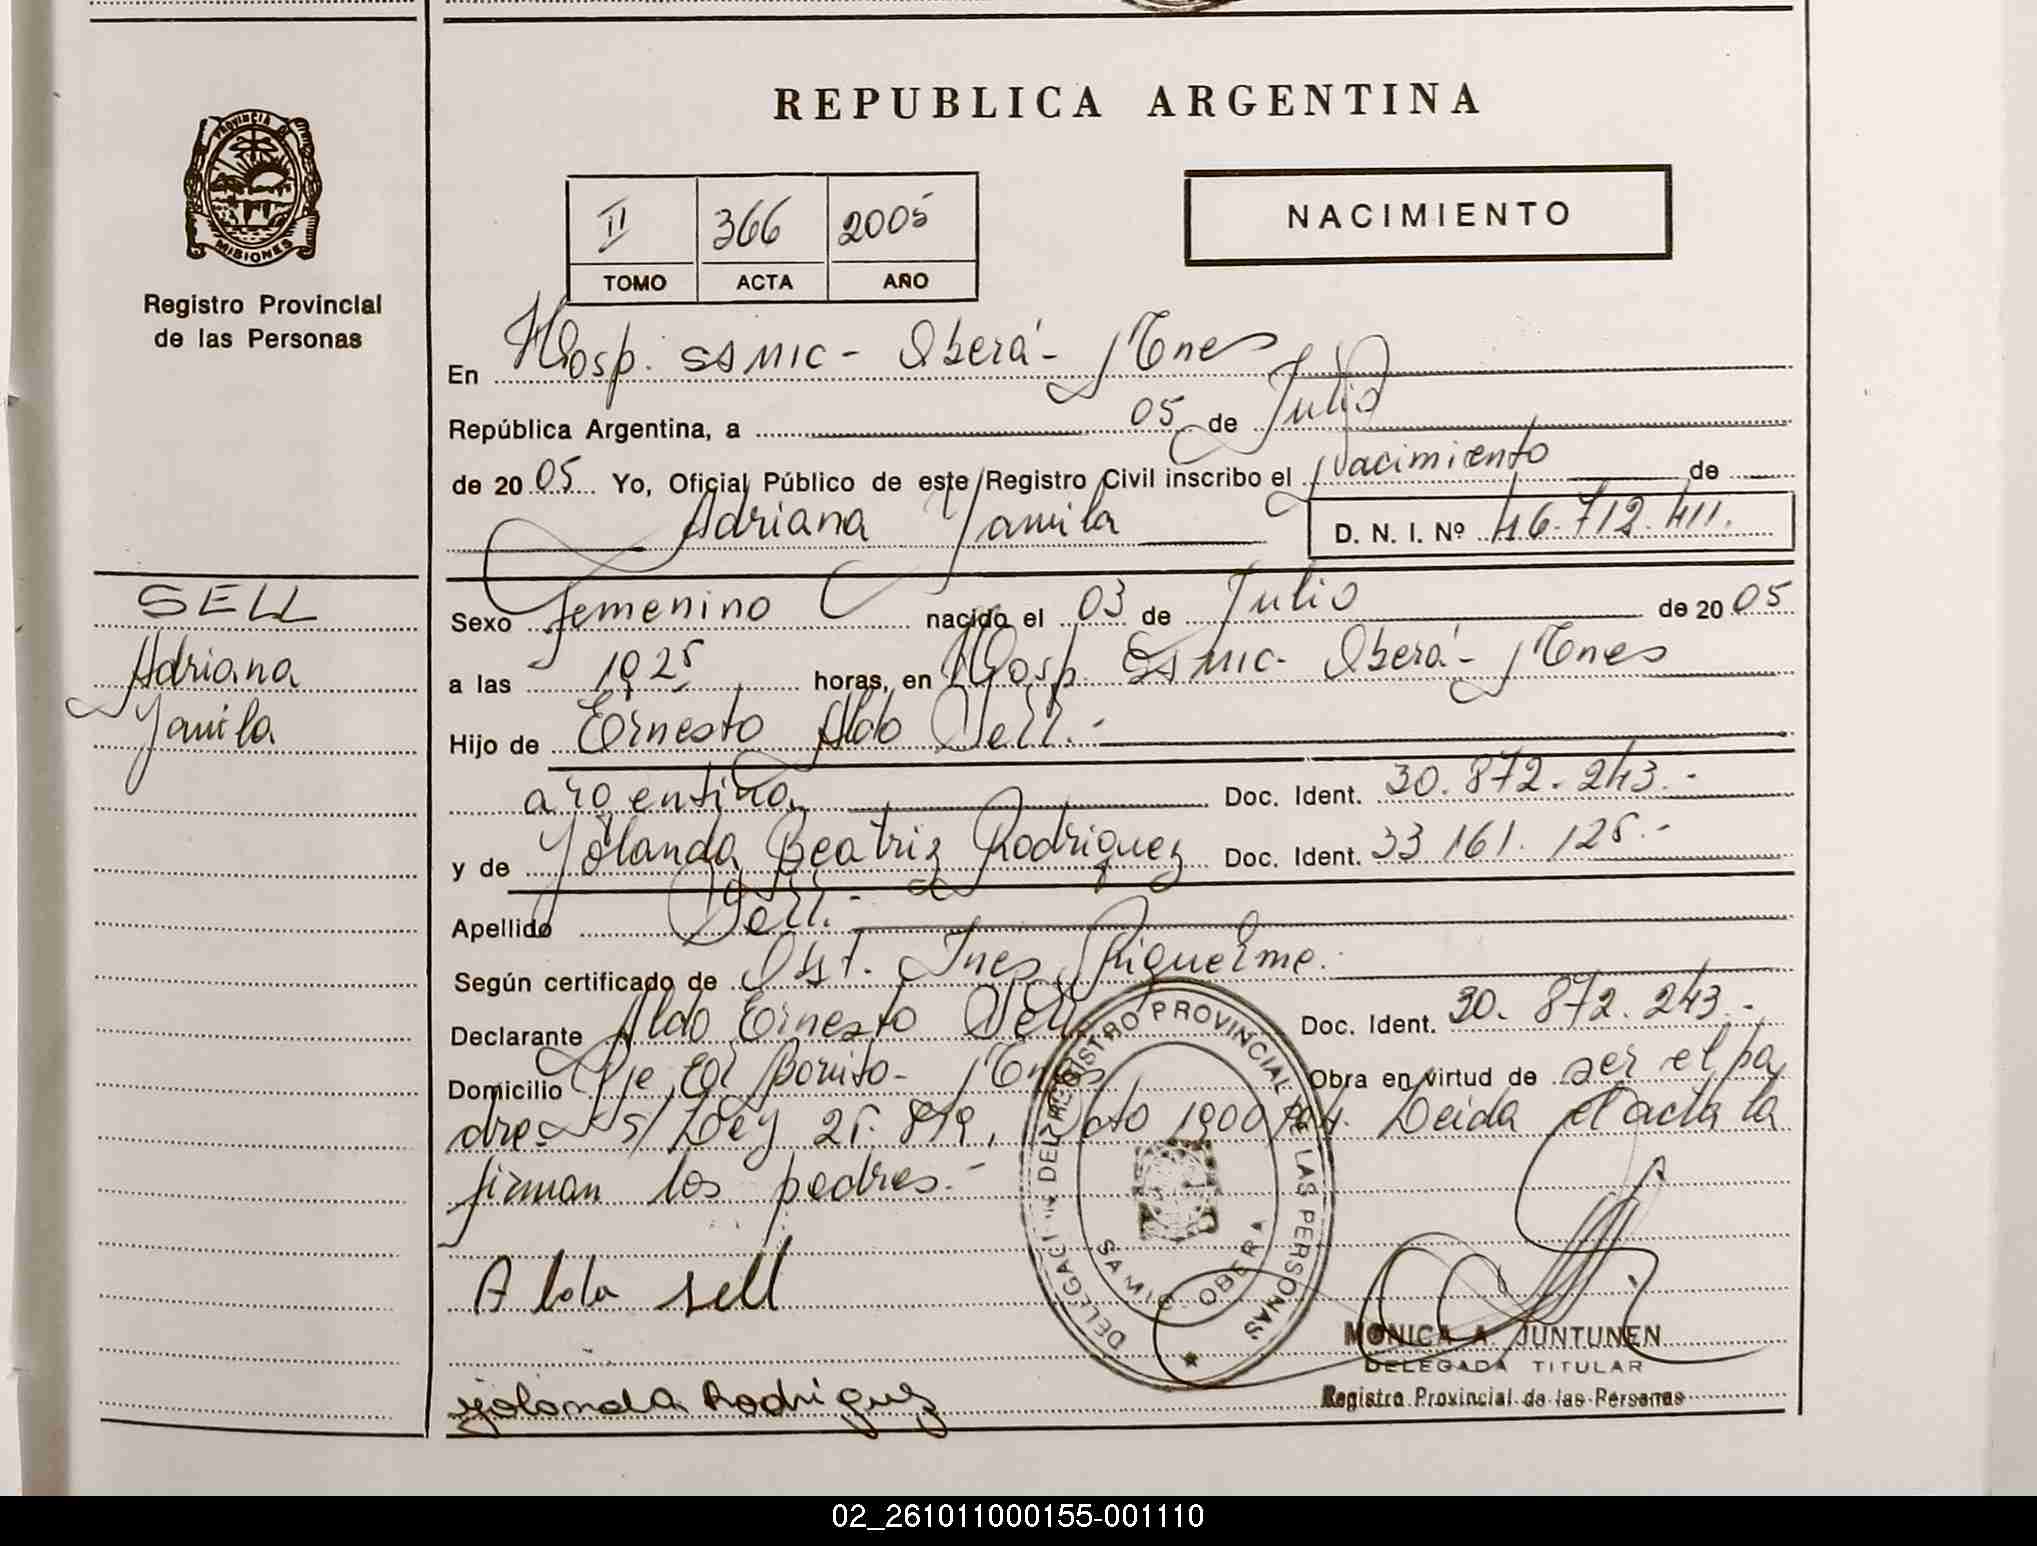 REPUBLICA ARGENTINA
PROVINCIA DE
MISIONES
Registro Provincial
de las Personas
II 366 2005
TOMO ACTA AÑO
NACIMIENTO
En Hosp. SAMIC - Oberá - Mnes
República Argentina, a 05 de Julio
de 2005 Yo, Oficial Público de este Registro Civil inscribo el Nacimiento de
Adriana Yamila D. N. I. Nº 46.712.411.
SELL
Adriana
Yamila
Sexo femenino nacido el 03 de Julio de 2005
a las 1925 horas, en Hosp. SAMIC - Oberá - Mnes
Hijo de Ernesto Aldo Sell.-
argentino, Doc. Ident. 30.872.243.-
y de Yolanda Beatriz Rodriguez Doc. Ident. 33 161. 125.-
Apellido Sell.-
Según certificado de Obst. Ines Riquelme.
Declarante Aldo Ernesto Sell Doc. Ident. 30. 872. 243.-
Domicilio Pje Bonito - Mnes Obra en virtud de ser el pa
dre - s/ Ley 25. 819, Dcto 1900/04. Leida el acta la
firman los padres.-
DELEGACION DEL REGISTRO PROVINCIAL DE LAS PERSONAS
SAMIC - OBERA
Aldo Sell
MONICA A. JUNTUNEN
DELEGADA TITULAR
Registro Provincial de las Personas
Yolanda Rodriguez
02_261011000155-001110